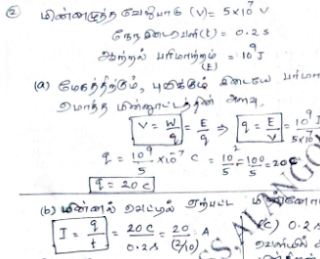 ② மின்னழுத்த வேறுபாடு (V) = 5×10⁷ V
நேர இடைவெளி (t) = 0.2 s
ஆற்றல் பரிமாற்றம் (E) = 10⁹ J
(a) மேகத்திற்கும், புவிக்கும் இடையே
மொத்த மின்னூட்டத்தின் அளவு.
V = W/q = E/q ⇒ q = E/V = 10⁹ J / 5×10
q = 10⁹/5 × 10⁻⁷ C = 10²/5 = 100/5 = 20C
q = 20 C
(b) மின்னல் வெட்டில் ஏற்பட்ட
I = q/t = 20C/0.2 s = 20/(2/10) A (C) 0.2
S.ALANGO